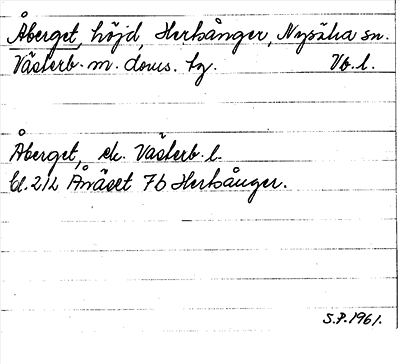 Åberget, höjd, Herrsånger, Nysätra sn.
Västerb. m. doms. tg. Vb. l.
Åberget, ek. Västerb. l.
bl. 212 Ånäset 7b Herrsånger.
S.P. 1961.